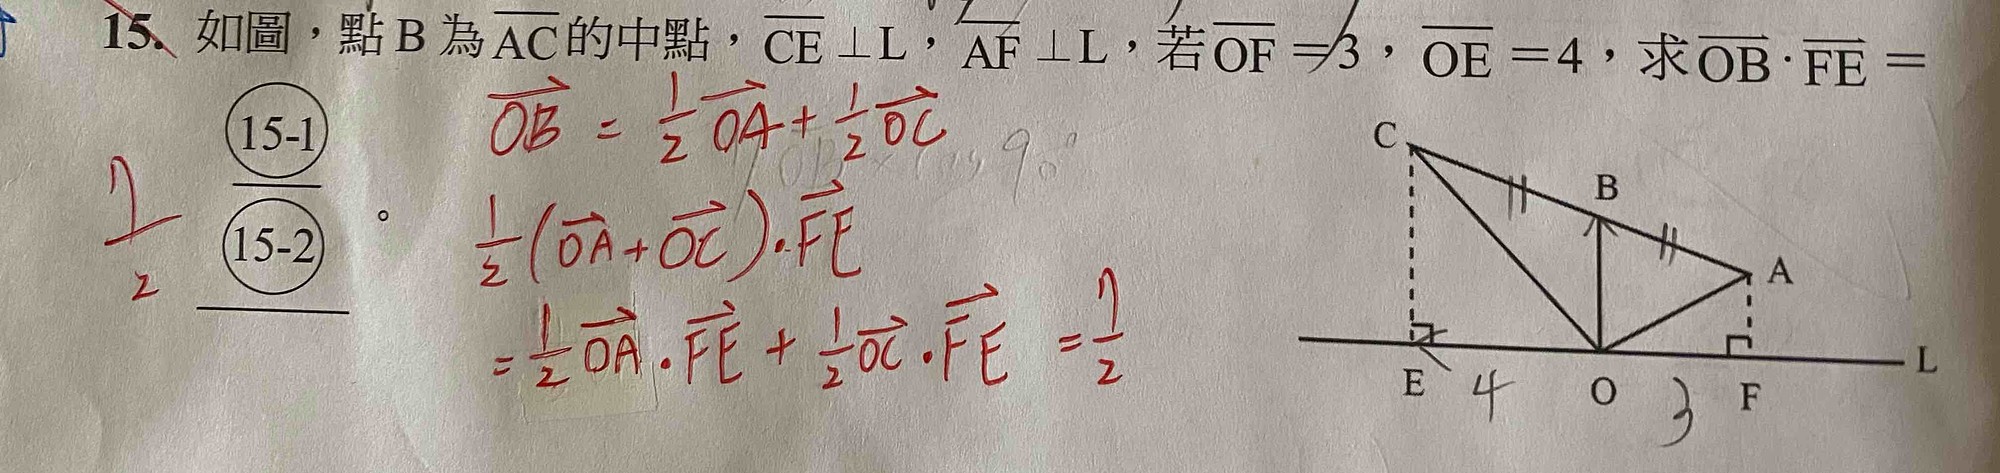 15. 如圖，點 B 為 AC 的中點，CE ⊥ L，AF ⊥ L，若 OF = 3，OE = 4，求 OB · FE =
15-1
15-2
。
7/2
OB = 1/2 OA + 1/2 OC
1/2 (OA + OC) · FE
= 1/2 OA · FE + 1/2 OC · FE = 7/2
C
B
A
L
E 4 O 3 F